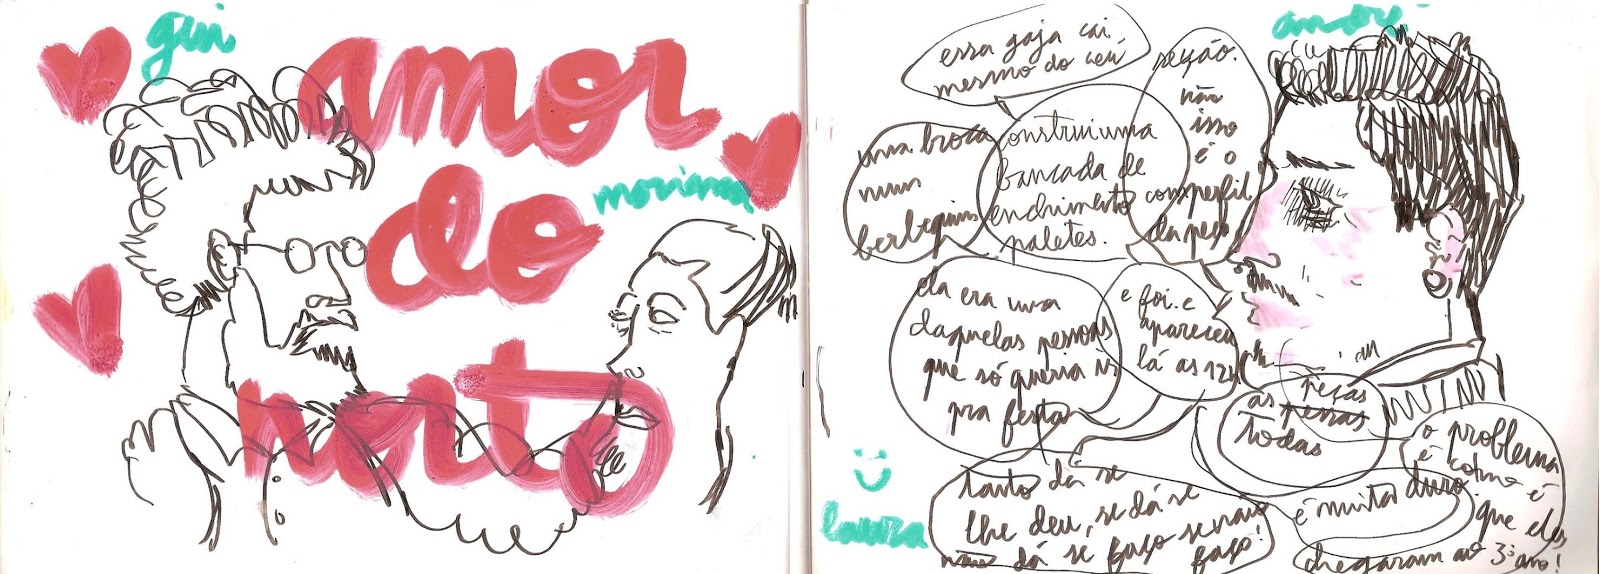 gui
amor
do
norte
mariana
andré
essa gaja cai
mesmo do céu
secção.
não
isso
é o
perfil
da peça
uma broca
num
berbequim
construi uma
bancada de
enchimento com
paletes.
ela era uma
daquelas pessoas
que só queria ir
pra festa
e foi. e
apareceu
lá as 12h
as peças
todas
tanto dá se
lhe deu, se dá se
não dá se faço se não
faço!
é muita duro
o problema
é como é
que eles
chegaram ao 3º ano!
laura